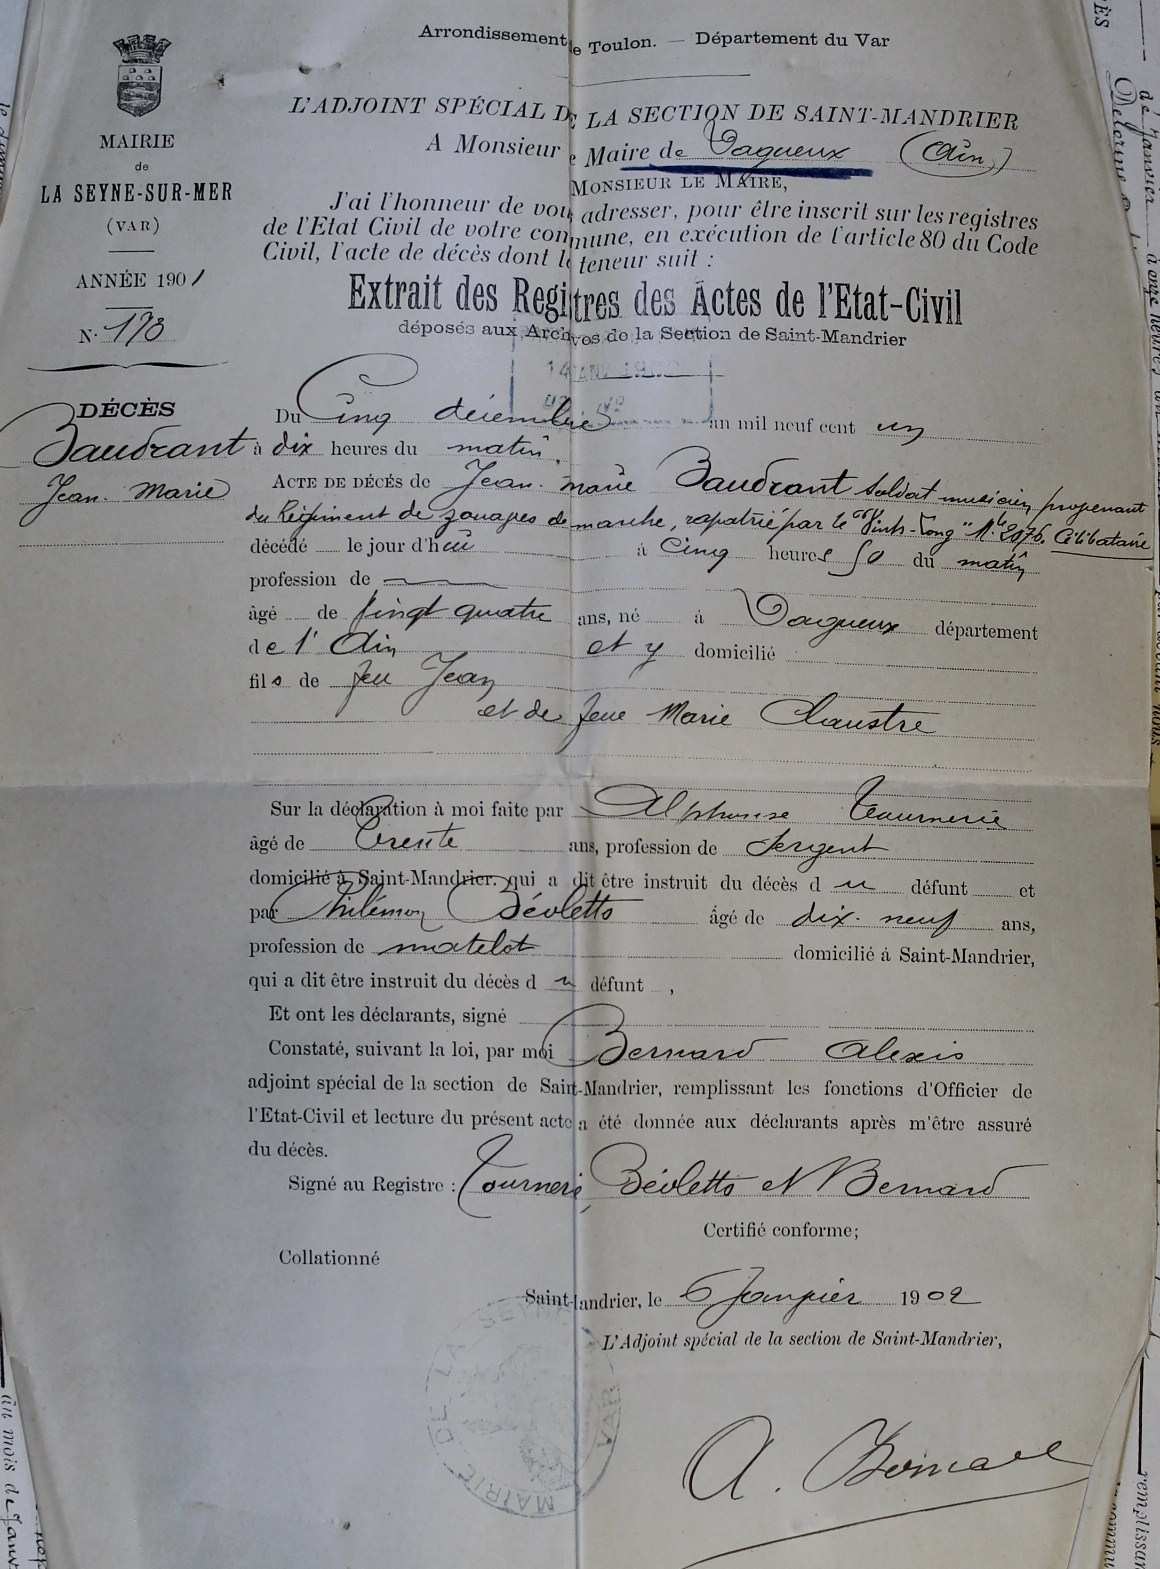 Arrondissement de Toulon. — Département du Var
L'ADJOINT SPÉCIAL DE LA SECTION DE SAINT-MANDRIER
A Monsieur le Maire de Vagueux (Ain)
MONSIEUR LE MAIRE,
J'ai l'honneur de vous adresser, pour être inscrit sur les registres
de l'Etat Civil de votre commune, en exécution de l'article 80 du Code
Civil, l'acte de décès dont la teneur suit :
MAIRIE
de
LA SEYNE-SUR-MER
(VAR)
ANNÉE 1901
N. 178
Extrait des Registres des Actes de l'Etat-Civil
déposés aux Archives de la Section de Saint-Mandrier
DÉCÈS
Baudrant
Jean-Marie
Du Cinq décembre an mil neuf cent un
à dix heures du matin.
ACTE DE DÉCÈS de Jean-Marie Baudrant soldat musicien provenant
du Régiment de zouaves de marche, rapatrié par le "Vinh-Long" Mle 2076. Célibataire
décédé le jour d'hui à Cinq heures 50 du matin
profession de
âgé de vingt quatre ans, né à Vagueux département
de l'Ain et y domicilié
fils de feu Jean
et de feue Marie Claustre
Sur la déclaration à moi faite par Alphonse Tournerie
âgé de trente ans, profession de Sergent
domicilié à Saint-Mandrier. qui a dit être instruit du décès du défunt et
par Philémon Béoletto âgé de dix-neuf ans,
profession de matelot domicilié à Saint-Mandrier,
qui a dit être instruit du décès du défunt ,
Et ont les déclarants, signé
Constaté, suivant la loi, par moi Bernard Alexis
adjoint spécial de la section de Saint-Mandrier, remplissant les fonctions d'Officier de
l'Etat-Civil et lecture du présent acte a été donnée aux déclarants après m'être assuré
du décès.
Signé au Registre : Tournerie, Béoletto et Bernard
Certifié conforme;
Collationné
Saint-Mandrier, le 6 Janvier 1902
L'Adjoint spécial de la section de Saint-Mandrier,
MAIRIE DE LA
VAR
A. Bernard